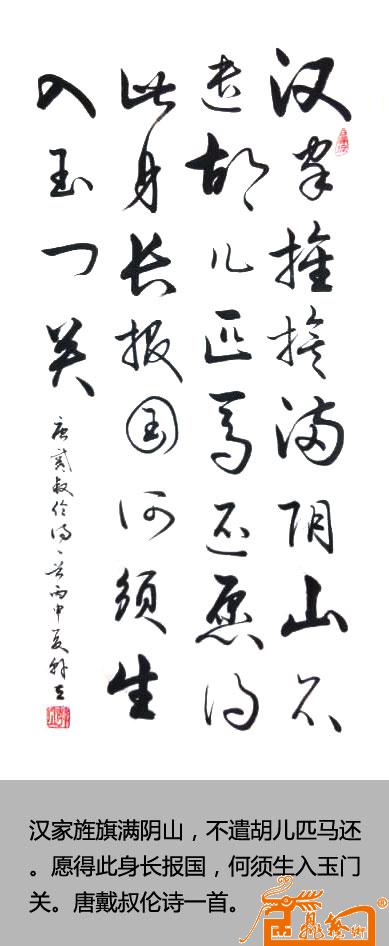 汉家旌旗满阴山不
遣胡儿匹马还愿得
此身长报国何须生
入玉门关
唐戴叔伦诗一首丙申夏
汉家旌旗满阴山，不遣胡儿匹马还
。愿得此身长报国，何须生入玉门
关。唐戴叔伦诗一首。